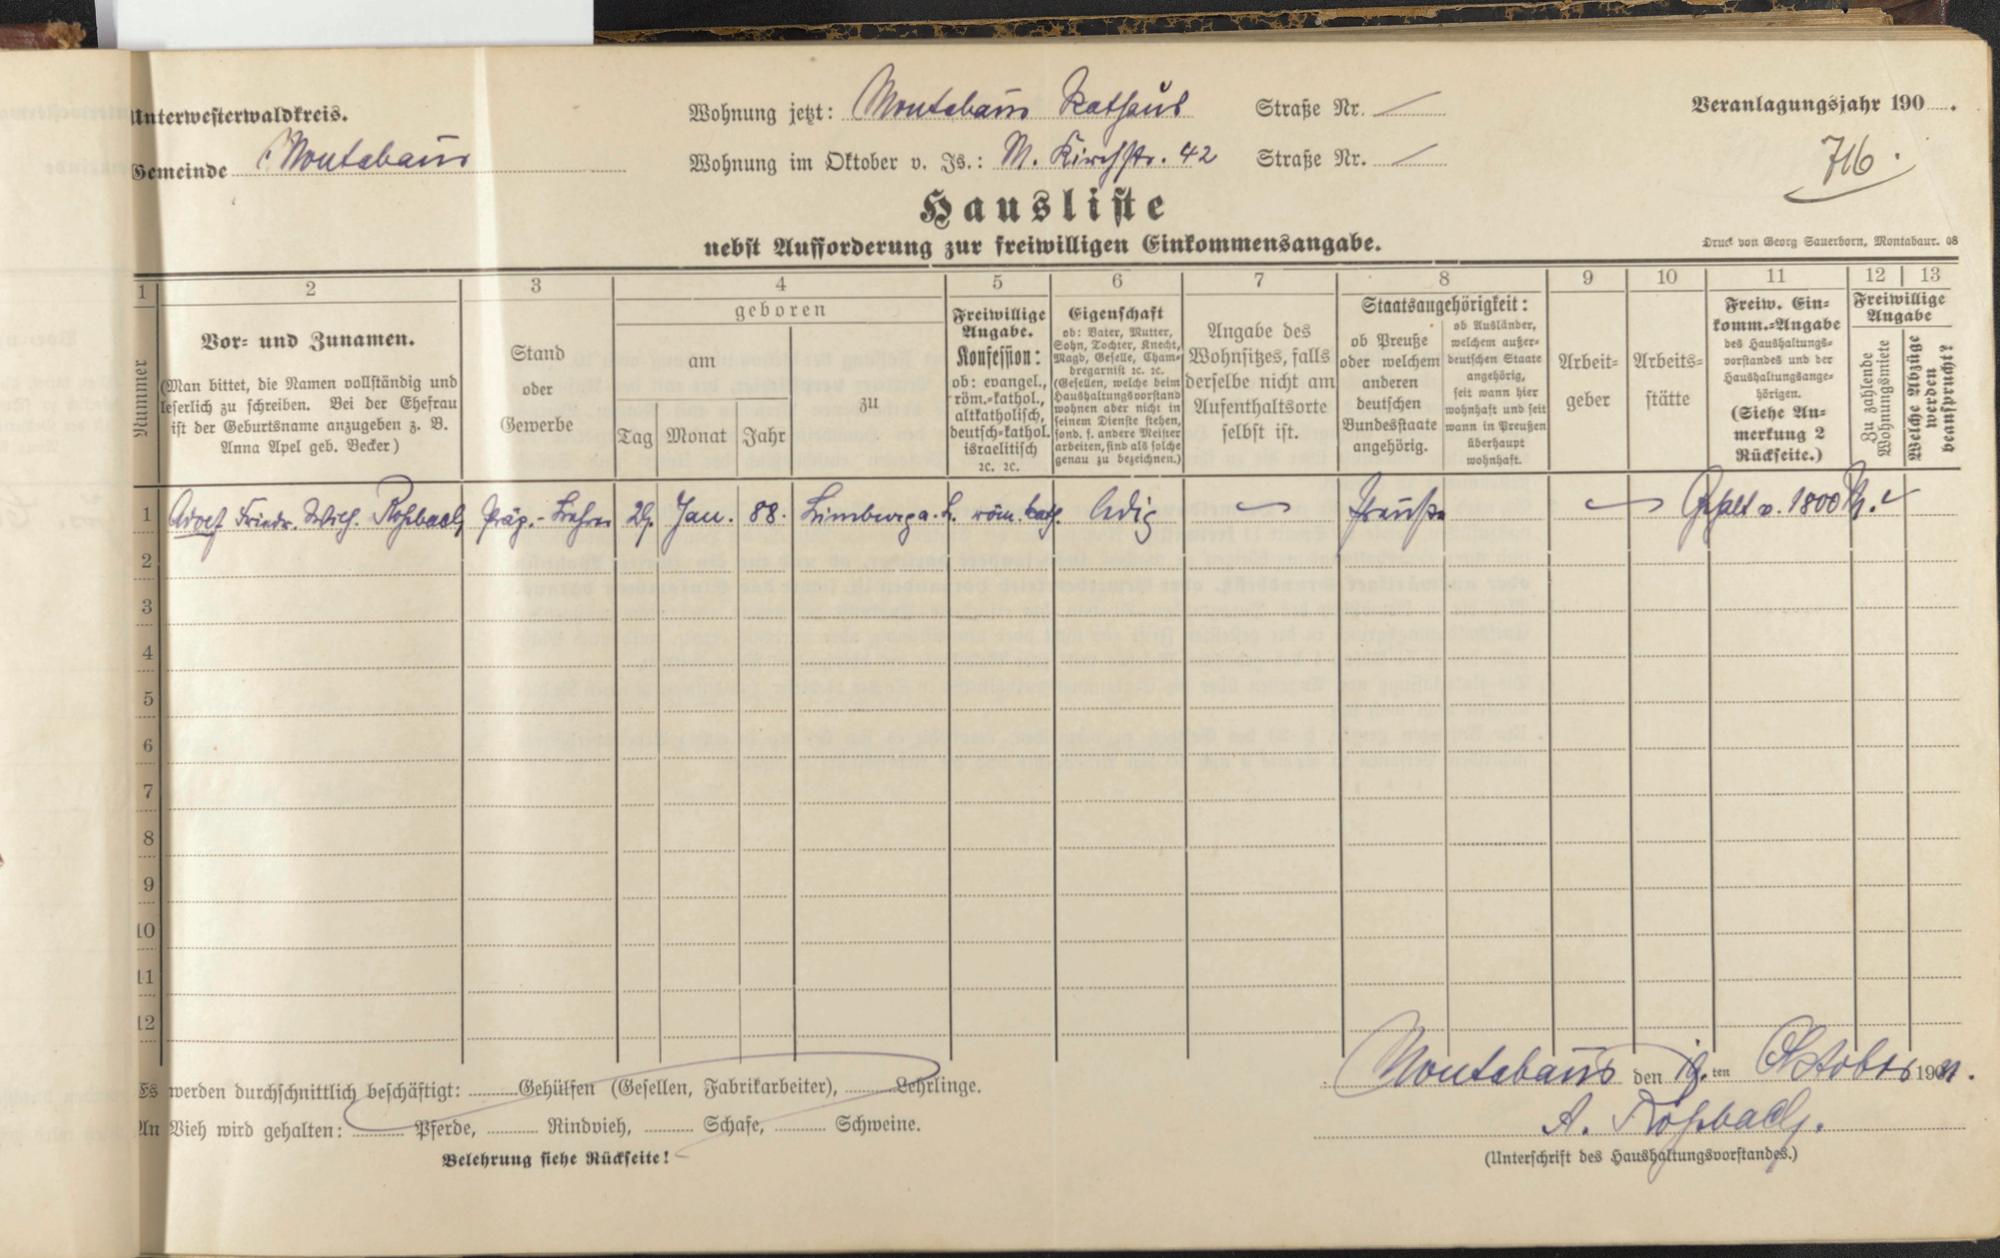 Unterwesterwaldkreis.
Gemeinde Montabaur
Wohnung jetzt: Montabaur Rathaus Straße Nr. —
Wohnung im Oktober v. Js.: M. Kirchstr. 42 Straße Nr. —
Veranlagungsjahr 190 .
716.
Hausliste
nebst Aufforderung zur freiwilligen Einkommensangabe.
Druck von Georg Sauerborn, Montabaur. 08
1 2 3 4 5 6 7 8 9 10 11 12 13
Nummer
Vor- und Zunamen.
(Man bittet, die Namen vollständig und
leserlich zu schreiben. Bei der Ehefrau
ist der Geburtsname anzugeben z. B.
Anna Apel geb. Becker)
Stand
oder
Gewerbe
geboren
am
Tag Monat Jahr
zu
Freiwillige
Angabe.
Konfession:
ob: evangel.,
röm.-kathol.,
altkatholisch,
deutsch-kathol.
israelitisch
ꝛc. ꝛc.
Eigenschaft
ob: Vater, Mutter,
Sohn, Tochter, Knecht,
Magd, Geselle, Cham-
bregarnist ꝛc. ꝛc.
(Gesellen, welche beim
Haushaltungsvorstand
wohnen aber nicht in
seinem Dienste stehen,
sond. f. andere Meister
arbeiten, sind als solche
genau zu bezeichnen.)
Angabe des
Wohnsitzes, falls
derselbe nicht am
Aufenthaltsorte
selbst ist.
Staatsangehörigkeit:
ob Preuße
oder welchem
anderen
deutschen
Bundesstaate
angehörig.
ob Ausländer,
welchem außer-
deutschen Staate
angehörig,
seit wann hier
wohnhaft und seit
wann in Preußen
überhaupt
wohnhaft.
Arbeit-
geber
Arbeits-
stätte
Freiw. Ein-
komm.-Angabe
des Haushaltungs-
vorstandes und der
Haushaltungsange-
hörigen.
(Siehe An-
merkung 2
Rückseite.)
Freiwillige
Angabe
Zu zahlende
Wohnungsmiete
Welche Abzüge
werden
beansprucht?
1 Adolf Friedr. Wilh. Roßbach Präp.-Lehrer 29. Jan. 88. Limburg a. L. röm. kath. ledig — Preuße — Gehalt v. 1800 M.
2
3
4
5
6
7
8
9
10
11
12
Es werden durchschnittlich beschäftigt: Gehülfen (Gesellen, Fabrikarbeiter), Lehrlinge.
An Vieh wird gehalten: Pferde, Rindvieh, Schafe, Schweine.
Belehrung siehe Rückseite!
Montabaur den 19. ten Oktober 190
A. Roßbach.
(Unterschrift des Haushaltungsvorstandes.)